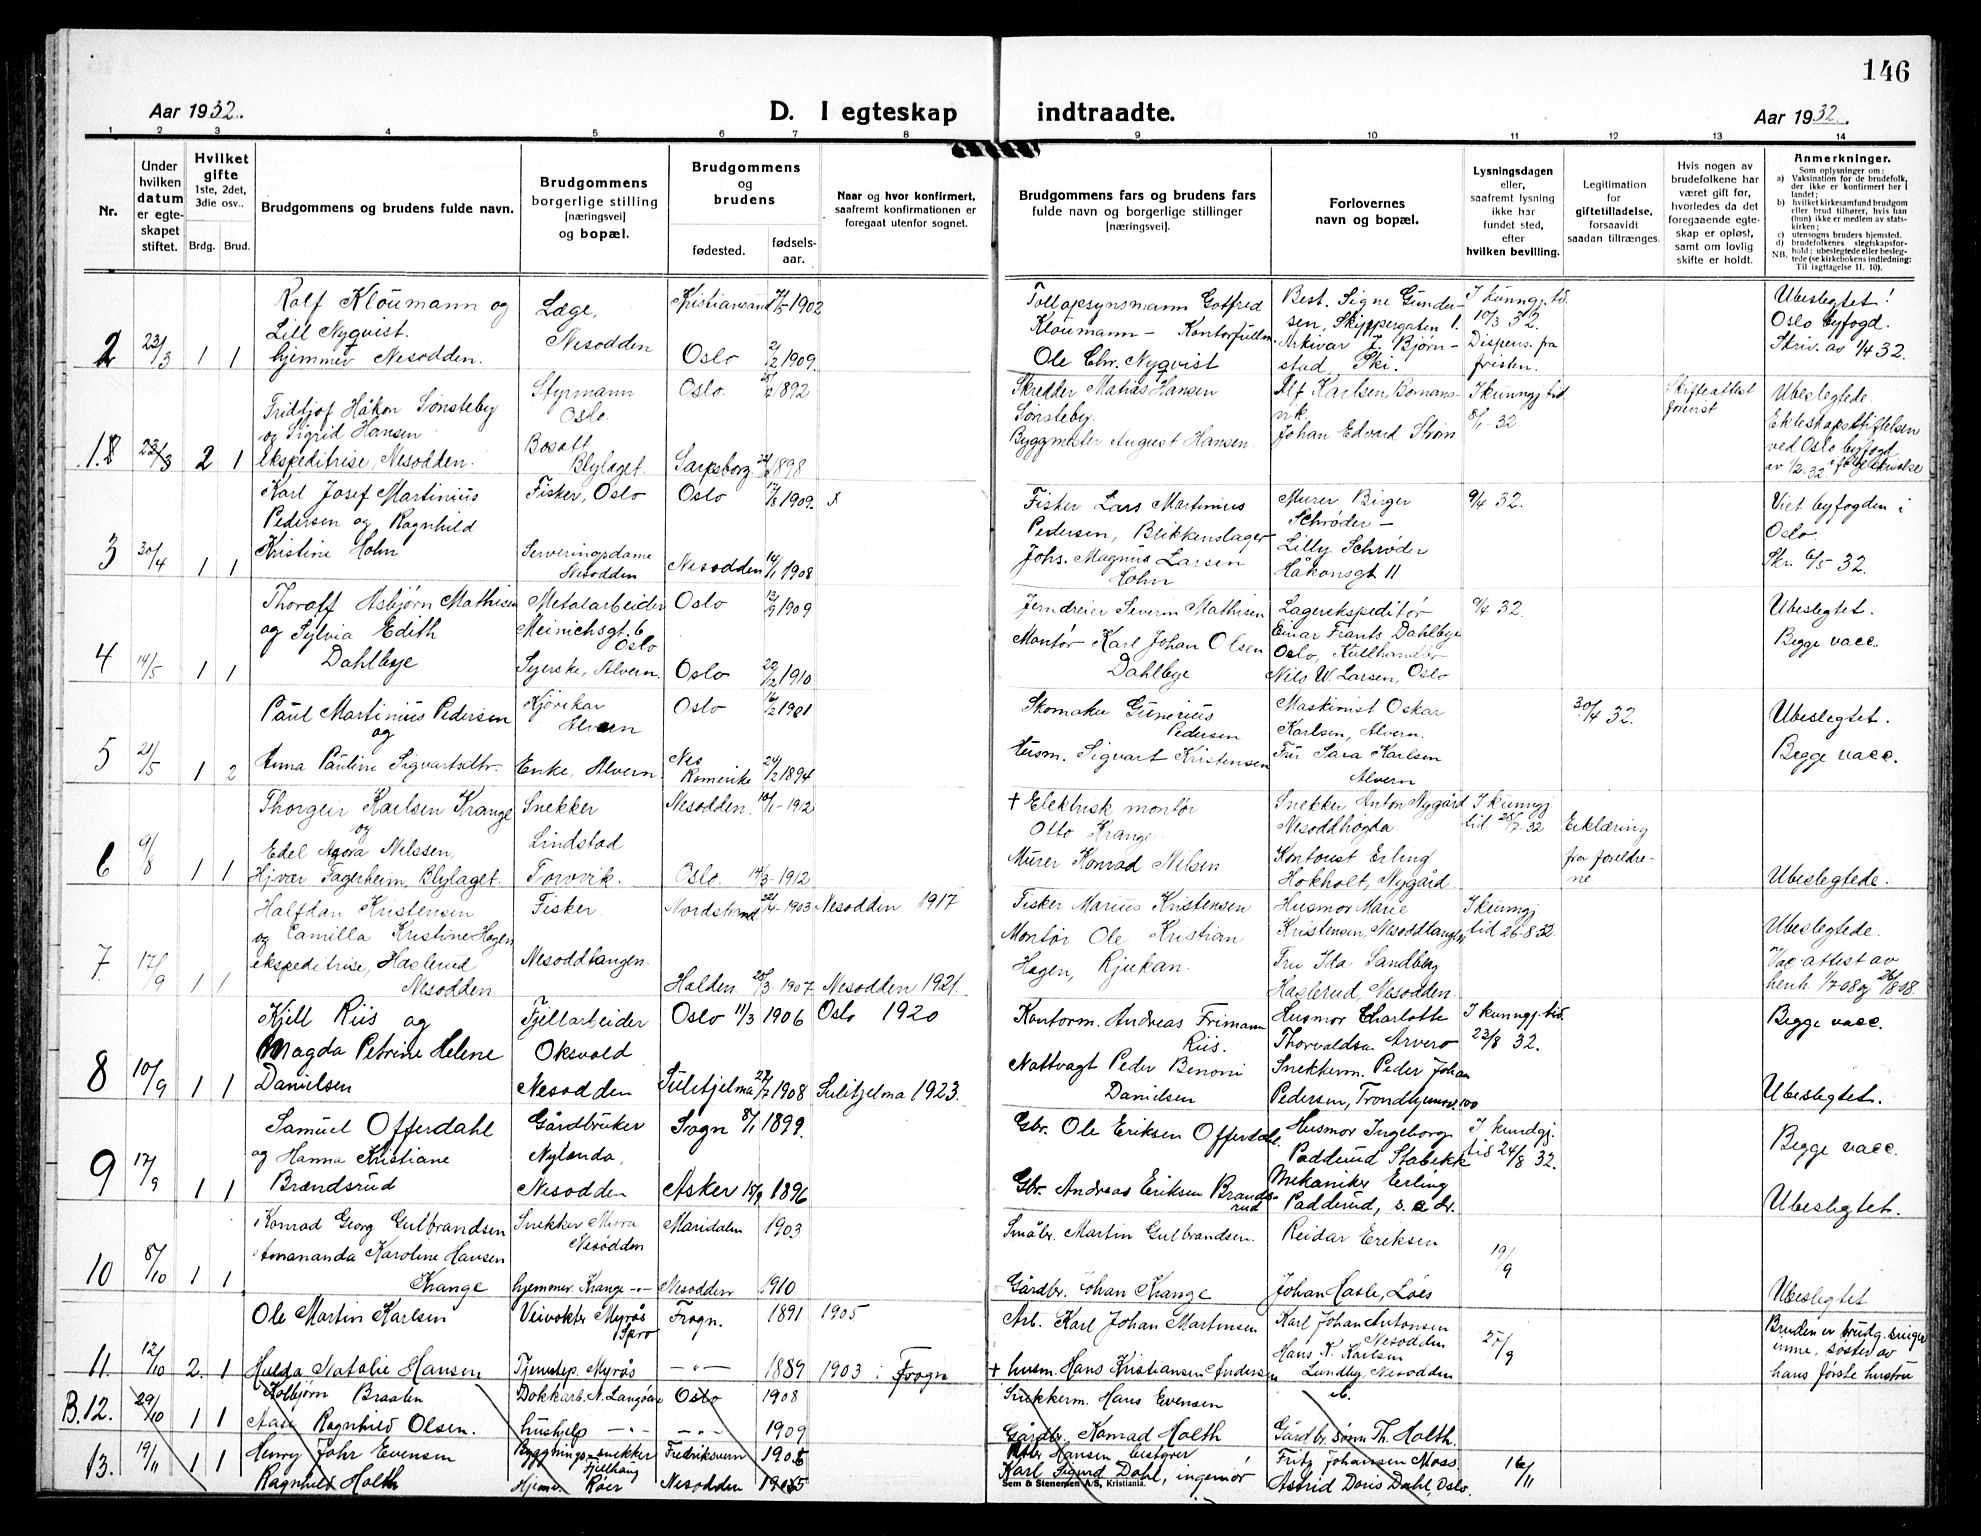 146
Aar 1932. D. I egteskap indtraadte. Aar 1932.
1 2 3 4 5 6 7 8 9 10 11 12 13 14
Nr.
Under hvilken datum er egteskapet stiftet.
Hvilket gifte 1ste, 2det, 3die osv..
Brdg. Brud.
Brudgommens og brudens fulde navn.
Brudgommens borgerlige stilling [næringsvei] og bopæl.
Brudgommens og brudens
fødested. fødselsaar.
Naar og hvor konfirmert, saafremt konfirmationen er foregaat utenfor sognet.
Brudgommens fars og brudens fars fulde navn og borgerlige stillinger [næringsvei].
Forlovernes navn og bopæl.
Lysningsdagen eller, saafremt lysning ikke har fundet sted, efter hvilken bevilling.
Legitimation for giftetilladelse, forsaavidt saadan tiltrænges.
Hvis nogen av brudefolkene har været gift før, hvorledes da det foregaaende egteskap er opløst, samt om lovlig skifte er holdt.
Anmerkninger.
Som oplysninger om:
a) Vaksination for de brudefolk, der ikke er konfirmert her i landet;
b) hvilket kirkesamfund brudgom eller brud tilhører, hvis han (hun) ikke er medlem av statskirken;
c) utensogns bruders hjemsted.
d) brudefolkenes slegtskapsforhold; ubeslegtede eller beslegtede (se kirkebokens indledning: Til iagttagelse II. 10).
NB.
2 23/3 1 1
Rolf Kloumann og
Lill Nyqvist.
hjemmev Nesodden.
Læge,
Nesodden
Kristiansand 1902
Oslo 2/2 1909.
Tollopsynsmann Gotfred
Kloumann – Kontorfullm.
Ole Chr. Nyqvist
Best. Signe Gundersen, Skippergaten 1.
Arkivar J. Bjørnstad, Ski.
I kunngj. td.
10/3 32.
Dispens. fra
fristen.
Ubeslegtet!
Oslo byfogd.
Skriv. av 1/4 32.
1. 23/3 2 1
Fridtjof Håkon Sønsteby
og Sigrid Hansen
ekspeditrise, Nesodden.
Styrmann
Oslo.
Bosatt
Blylaget.
Oslo. 1892
Sarpsborg. 1898
Skredder Matias Hansen
Sønsteby.
Byggmester August Hansen.
Alf Karlsen Bomansvik.
Johan Edvard Strøm
I kunngj. tid
8/1-32
Skifteattest
forevist
Ubeslegtede.
Ekteskapsstiftelsen
ved Oslo byfogd
av 1/2.32
3 30/4 1 1
Karl Josef Martinius
Pedersen og Ragnhild
Kristine Hohn
Fisker, Oslo
Serveringsdame
Nesodden
Oslo 1909. x
Nesodden 14/1 1908
Fisker Lars Martinius
Pedersen, Blikkenslager
Johs. Magnus Larsen
Hohn
Murer Birger
Schrøder –
Lilly Schrøder
Håkonsgt 11
9/4 32.
Viet byfogden i
Oslo.
Skr. 6/5 32.
4 14/5 1 1
Thoralf Asbjørn Mathisen
og Sylvia Edith
Dahlbye
Metalarbeider
Meinichsgt. 6
Oslo
Syerske, Alvern.
Oslo 13/9 1909
Oslo 1910
Jerndreier Severin Mathisen
Montør Karl Johan Olsen
Dahlbye
Lagerekspeditør
Einar Frants Dahlbye
Oslo, Kullhandler
Nils W. Larsen, Oslo
9/4 32.
Ubeslegtet.
Begge vacc.
5 21/5 1 2
Paul Martinius Pedersen
og
Anna Pauline Sigvartsdtr.
Alvern
Enke, Alvern
Oslo 1901
Nes
Romerike 24/2 1894
Skomaker Gunerius
Pedersen
Husm. Sigvart Kristensen
Maskinist Oskar
Karlsen, Alvern.
Fru Sara Karlsen
Alvern
30/4 32.
Ubeslegtet.
Begge vacc.
6 9/8 1 1
Thorgeir Karlsen Krange
og
Edel Agora Nilssen,
Hjvær Fagerheim, Blylaget.
Snekker
Lindstad
Torvvik.
Nesodden. 10/1-1912
Oslo. 14/3-1912
+ Elektrisk montør
Otto Krange.
Murer Konrad Nilsen
Snekker Anton Nygård
Nesoddhøgda.
Kontorist Erling
Hokholt, Nygård
I kunngj
tid 28/7-32
Erklæring
fra foreldrene
Ubeslegtede.
7. 17/9 1 1
Halfdan Kristensen
og Camilla Kristine Hagen
ekspeditrise, Haslerud
Nesodden
Fisker.
Nesoddtangen.
Nordstrand 1903 Nesodden 1917
Halden. 28/3-1907. Nesodden 1921.
Fisker Marius Kristensen
Montør Ole Kristian
Hagen, Rjukan.
Husmor Marie
Kristensen, Nesoddtangen
Fru Ida Sandberg
Haslerud, Nesodden.
I kunngj
tid 26-8 32.
Ubeslegtede.
Vac. attest av
henh. 1/7 08 og 26/8 08.
8 10/9 1 1
Kjell Riis og
Magda Petrine Helene
Danielsen
Fjellarbeider
Oksvold
Nesodden
Oslo 11/3 1906 Oslo 1920
Sulitjelma 27/7 1908 Sulitjelma 1923.
Kontorm. Andreas Frimann
Riis.
Nattvagt Peder Benoni
Danielsen
Husmor Charlotte
Thorvaldsen Arvero
Snekkerm. Peder Johan
Pedersen, Trondhjemsv. 100
I kunngj. tid.
23/8 32.
Begge vacc.
Ubeslegtet.
9 17/9 1 1
Samuel Offerdahl
og Hanna Kristiane
Brændsrud
Gårdbruker
Nylenda,
Nesodden
Sogn 8/1 1899.
Asker 15/9 1896
Gbr. Ole Eriksen Offerdahl.
Gbr. Andreas Eriksen Brændsrud
Husmor Ingeborg
Padderud Stabekk
Mekaniker Erling
Padderud, s. st.
I kundgj.
tid 24/8 32.
Begge vacc.
Ubeslegtet.
10 8/10 1 1
Konrad Georg Gulbrandsen
Amananda Karoline Hansen
Krange
Snekker Myra
Nesodden
hjemmev. Krange -"-
Maridalen 1903
Nesodden 1910
Småbr. Martin Gulbrandsen.
Gårdbr. Johan Krange
Reidar Eriksen
Johan Hasle, Løes
19/9
Ubeslegtet
11. 12/10 2. 1
Ole Martin Karlsen
Hulda Natalie Hansen
Veivokter Myrås
Spro
Tjenestep. Myrås
Frogn. 1891 1905
-"- 1889 1903 i Frogn
Arb. Karl Johan Martinsen
+ husm. Hans Kristiansen Andersen
Karl Johan Antonsen
Nesodden
Hans K. Karlsen
Lundby, Nesodden
27/9
Bruden er brudg. svigerinne, søster av
hans første hustru
B.12. 29/10 1 1
Kolbjørn Braaten
Aase Ragnhild Olsen.
Dokkarb. N. Langøene
hushjelp -"-
Oslo 1908
-"- 1909
13. 19/11 1 1
Henry Johr Evensen
Ragnhild Holth
Bygningssnekker
Fjellhaug
Hjemmev. Røer
Fredriksvern 1905
Nesodden 1905
Snekkerm. Hans Evensen
Gårdbr. Konrad Holth
Hansen bestyrer
Karl Sigurd Dahl, ingeniør
Gårdbr. sønn Th. Holth.
Fritz Johansen Moss.
Astrid Doris Dahl, Oslo.
16/11
Sem & Stenersen A/S, Kristiania.